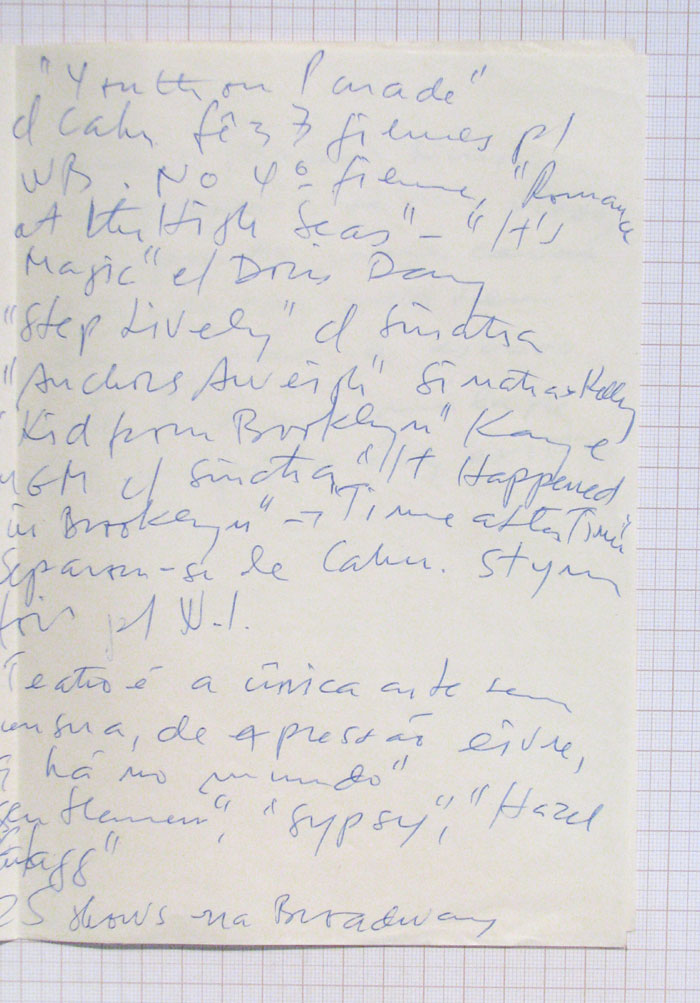 "Youth on Parade"
c/ Cahn fêz 3 filmes p/
WB. No 4º filme, "Romance
at the High Seas" – "It's
Magic" c/ Doris Day
"Step Lively" c/ Sinatra
"Anchors Aweigh" Sinatra + Kelly
"Kid from Brooklyn" Kaye
MGM c/ Sinatra "It Happened
in Brooklyn" → "Time after Time"
Separou-se de Cahn. Styne
foi p/ N.I.
Teatro é a única arte sem
censura, de expressão livre,
há no mundo"
Gentlemen", "Gypsy", "Hazel
Flagg"
25 shows na Broadway